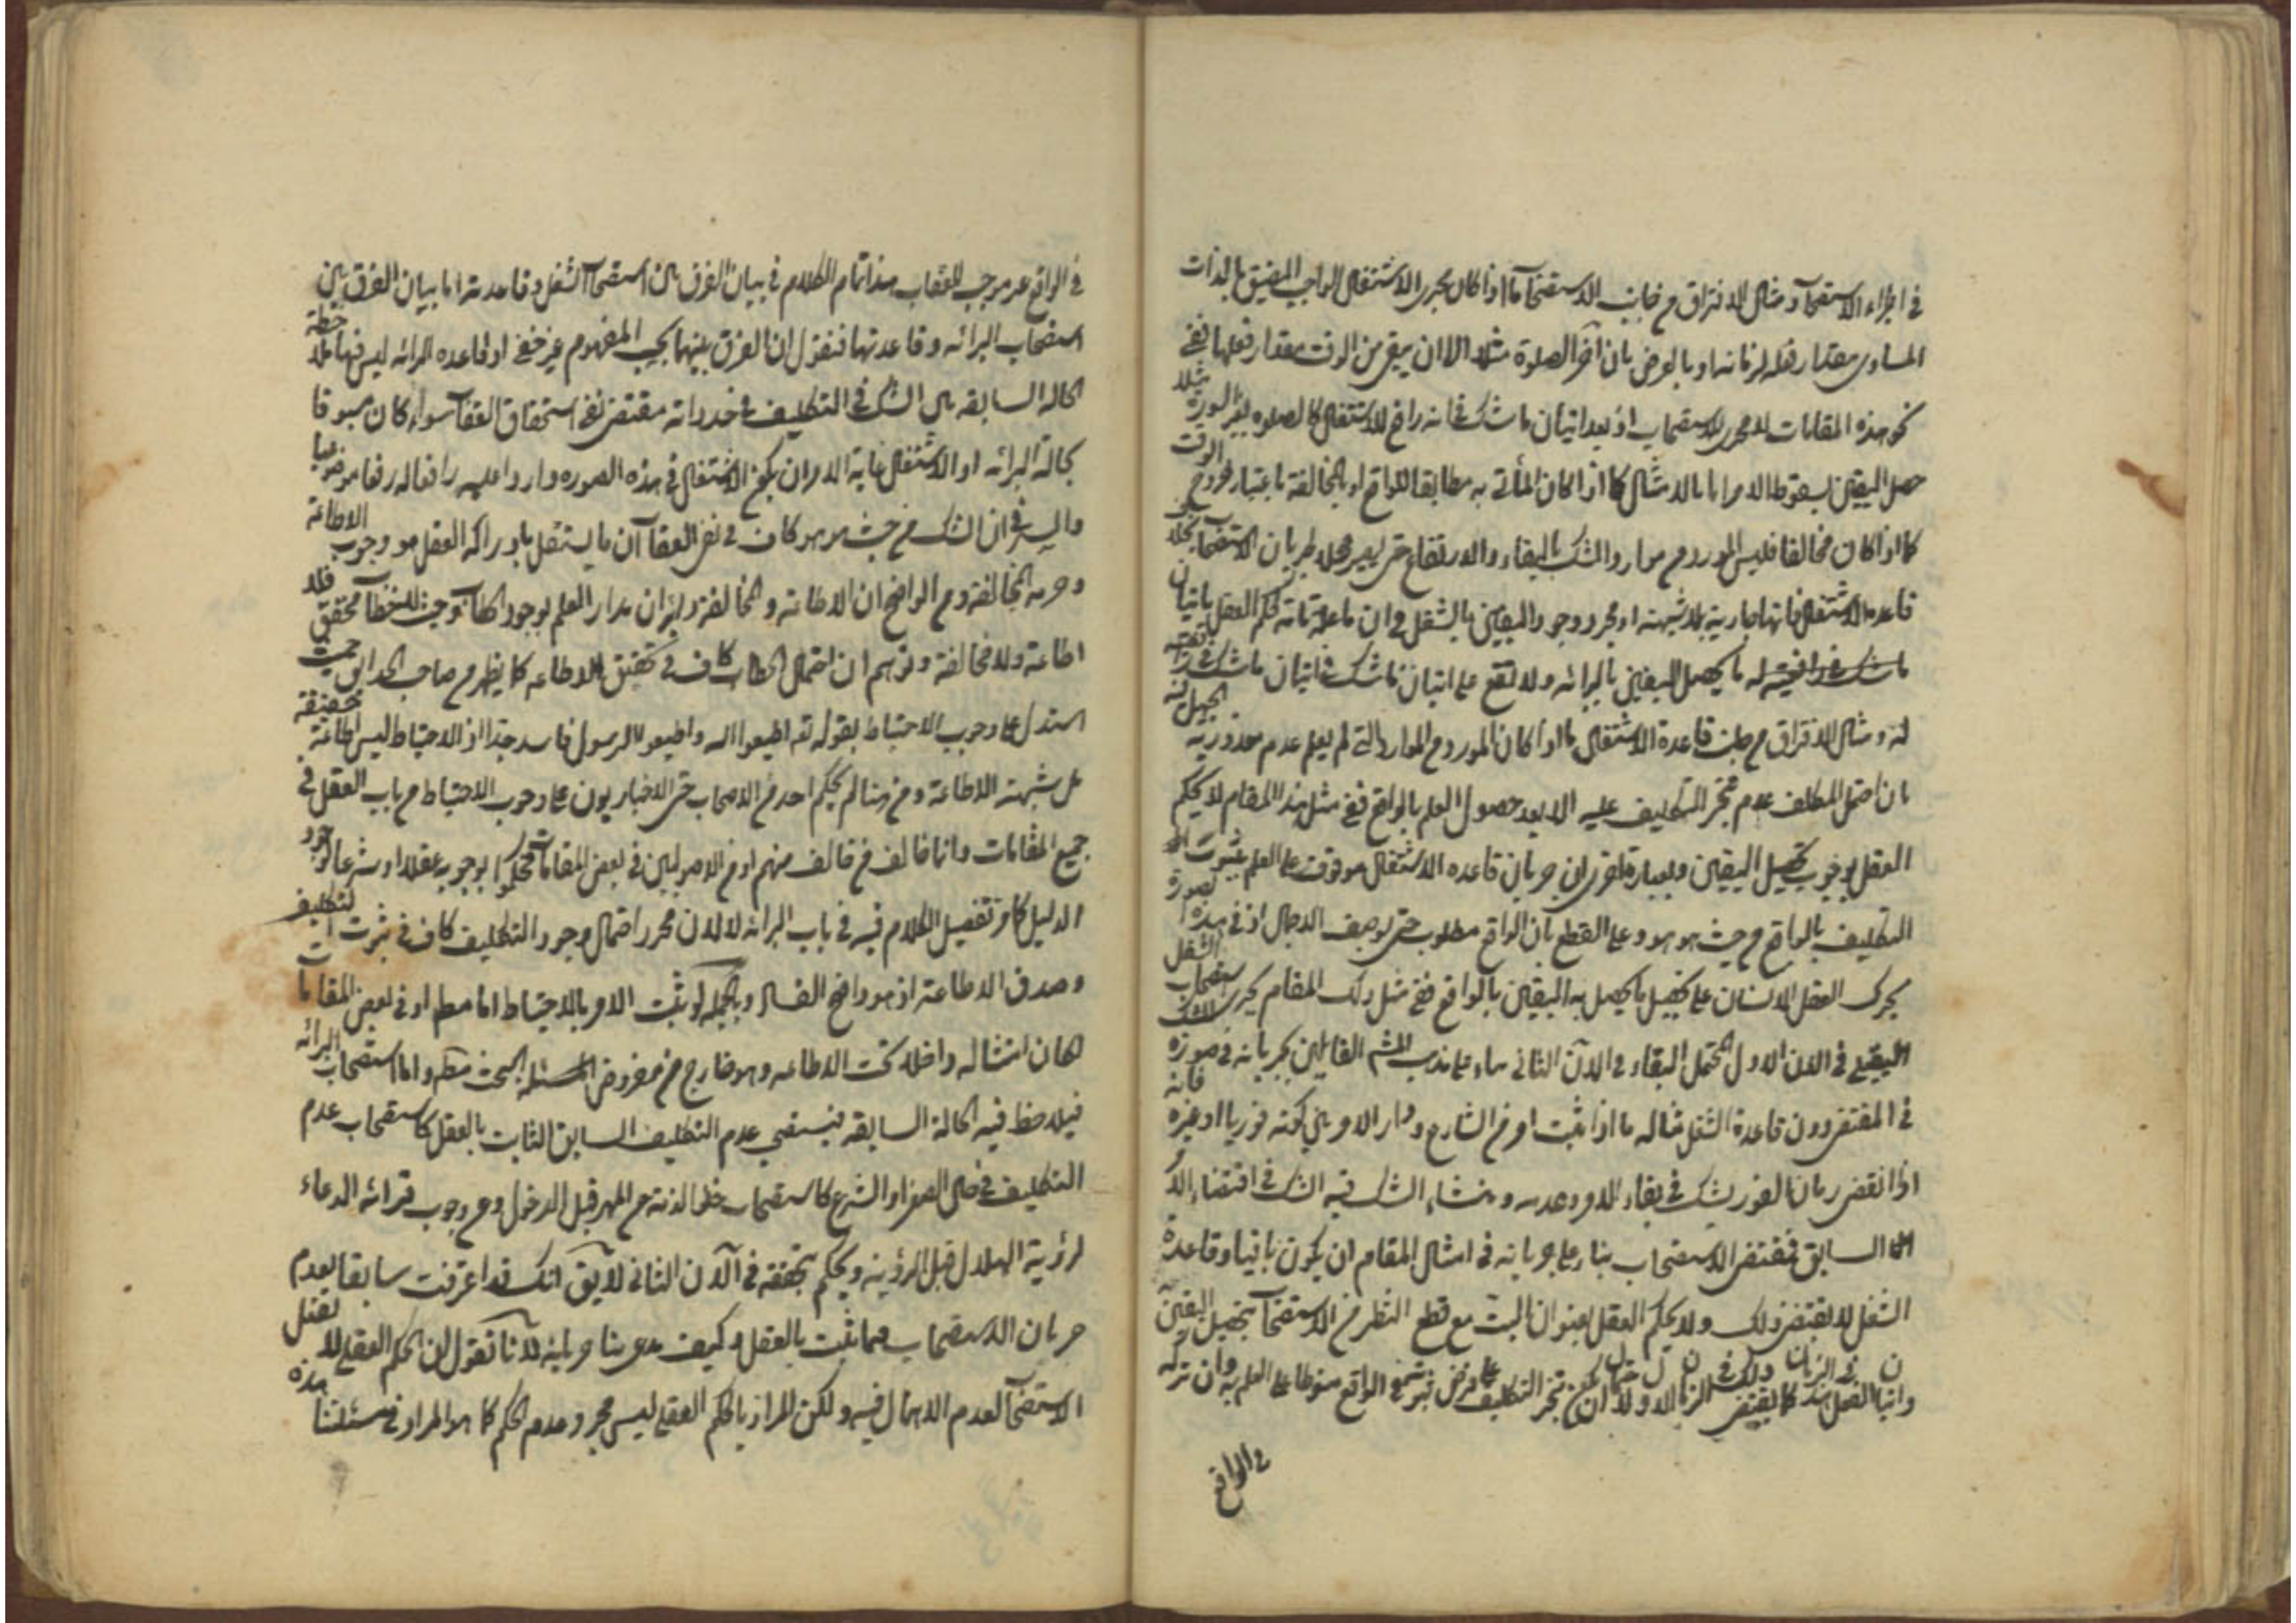 في اجراء الاستصحاب ومثال الافتراق من جانب الاستصحاب ما اذا كان مجرى الاشتغال الواجب المضيق بالذات
المساوى مقدار فعله لزمانه او بالعرض بان اخر الصلوة مثلا الا ان يبقى من الوقت مقدار فعلها ففي
نحو هذه المقامات لا مجرى للاستصحاب اذ بعد اتيان ما شك في انه رافع للاشتغال كالصلوه بغير السورة مثلا
حصل اليقين بسقوط الامر اما بالامتثال كما اذا كان المأتى به مطابقا للواقع او بالمخالفة باعتبار خروج الوقت
كما اذا كان مخالفا فليس المورد من موارد الشك بالبقاء والارتفاع حتى يصير محلا لجريان الاستصحاب بخلاف
قاعدة الاشتغال فانها جارية بلا شبهة اذ بمجرد وجود اليقين بالشغل في ان ما علة تامة لحكم العقل باتيان
ما يحصل اليقين بالبرائه ولا تقع على اتيان ما شك في اتيان ما شك في رافعيته
له ومثال الافتراق من جانب قاعدة الاشتغال ما اذا كان المورد من الموارد التى لم يعلم عدم معذورية الجهل فيه
بان احتمل المكلف عدم تنجز التكليف عليه الا بعد حصول العلم بالواقع ففي مثل هذا المقام لا يحكم
العقل بوجوب تحصيل اليقين وبعبارة اخرى ان جريان قاعده الاشتغال موقوف على العلم بثبوت
التكليف بالواقع من حيث هو هو وعلى القطع بان الواقع مطلوب حتى بوصف الاجمال اذ في هذه الصورة
يحرك العقل الانسان على تحصيل ما يحصل به اليقين بالواقع ففي مثل ذلك المقام يجرى استصحاب الشغل
اليقينى في الان الاول المحتمل البقاء في الآن الثانى بناء على مذهب المشهر القائلين بجريانه في صورة
في المقتضى دون قاعدة الشغل مثاله ما اذا ثبت امر من الشارع ودار الامر بين كونه فوريا او غيره فانه
اذا انقضى زمان الفور يشك في بقاء الامر وعدمه ومنشاء الشك فيه الشك في اقتضاء الامر
السابق فمقتضى الاستصحاب بناء على جريانه في امثال المقام ان يكون باقيا وقاعدة
الشغل لا يقتضى ذلك ولا يحكم العقل بعنوان البت مع قطع النظر من الاستصحاب بتحصيل اليقين
واتيان الفعل في هذا الزمان كما يقتضى ذلك في الزمان الاول لاحتمال ان يكون تنجز التكليف على فرض ثبوته في الواقع منوطا على العلم به وان تركه
في الواقع
في الواقع غير موجب للعقاب هذا تمام الكلام في بيان الفرق بين استصحاب الشغل وقاعدته اما بيان الفرق بين
استصحاب البرائه وقاعدتها فنقول ان الفرق بينهما بحسب المفهوم غير خفي اذ قاعده البرائه ليس فيها ملاحظة
الحاله السابقه بل الشك في التكليف في حد ذاته مقتضى لنفى استحقاق العقاب سواء كان مسبوقا
بحالة البرائه او الاشتغال غاية الامر ان يكون الاشتغال في هذه الصوره واردا عليه رافعا له رفعا موضوعيا
والسر في ان الشك من حيث هو هو كاف في نفى العقاب ان ما يستقل بادراكه العقل هو وجوب الاطاعة
وحرمة المخالفة ومن الواضح ان الاطاعة والمخالفة يدوران مدار العلم بوجود الخطاب وحيث لا خطاب محقق فلا
اطاعة ولا مخالفة وتوهم ان احتمال الخطاب كاف في تحقيق الاطاعه كما يظهر من صاحب الحدائق حيث
استدل على وجوب الاحتياط بقوله تعه اطيعوا الله واطيعوا الرسول فاسد جدا اذ الاحتياط ليس اطاعة حقيقة
بل شبهة الاطاعة ومن هنا لم يحكم احد من الاصحاب حتى الاخباريون على وجوب الاحتياط من باب العقل في
جميع المقامات وانما خالف من خالف منهم او من الاصوليين في بعض المقامات فحكموا بوجوبه عقلا او شرعا لوجود
الدليل كما مر تفصيل الكلام فيه في باب البرائه لا لان مجرد احتمال وجود التكليف كاف في ثبوت التكليف
وصدق الاطاعة اذ هو واضح الفساد وبالجمله لو ثبت الامر بالاحتياط اما مطلقا او في بعض المقامات
لكان امتثاله داخلا تحت الاطاعه وهو خارج من مفروض البحث واما استصحاب البرائه
فيلاحظ فيه الحالة السابقه فيستصحب عدم التكليف السابق الثابت بالعقل كاستصحاب عدم
التكليف في حال الصغر او الشرع كاستصحاب خلو الذمة من المهر قبل الدخول وعدم وجوب قرائة الدعاء
لرؤية الهلال قبل الرؤية ويحكم بتحققه في الآن الثانى لا يق انك قد اعترفت سابقا بعدم
جريان الاستصحاب فيما ثبت بالعقل وكيف تدعى هنا جريانه لانا نقول ان الحكم العقلى لا يقبل
الاستصحاب لعدم الاهمال فيه ولكن المراد بالحكم العقلى ليس مجرد عدم الحكم كما هو المراد في مسئلتنا هذه